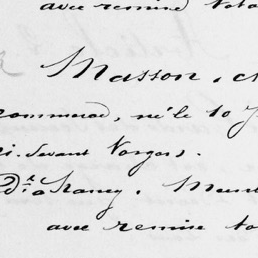 avec remise tota
Masson, c
commerce, né le 10 J
ci-devant Vosges.
Dr à Nancy, Meur
avec remise to